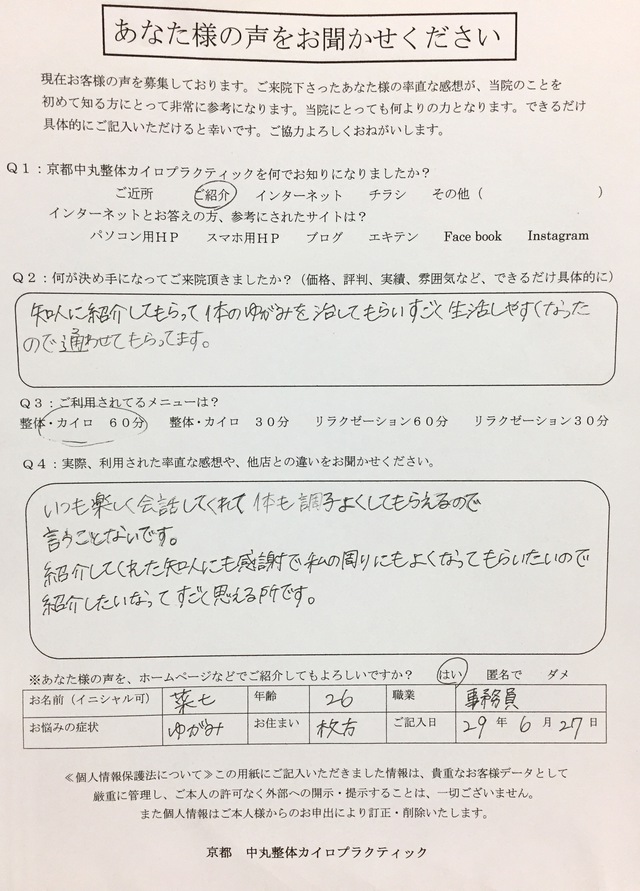 あなた様の声をお聞かせください
現在お客様の声を募集しております。ご来院下さったあなた様の率直な感想が、当院のことを
初めて知る方にとって非常に参考になります。当院にとっても何よりの力となります。できるだけ
具体的にご記入いただけると幸いです。ご協力よろしくおねがいします。
Q1：京都中丸整体カイロプラクティックを何でお知りになりましたか？
ご近所 ご紹介 インターネット チラシ その他（ ）
インターネットとお答えの方、参考にされたサイトは？
パソコン用HP スマホ用HP ブログ エキテン Face book Instagram
Q2：何が決め手になってご来院頂きましたか？（価格、評判、実績、雰囲気など、できるだけ具体的に）
知人に紹介してもらって体のゆがみを治してもらいすごく生活しやすくなった
ので通わせてもらってます。
Q3：ご利用されてるメニューは？
整体・カイロ 60分 整体・カイロ 30分 リラクゼーション60分 リラクゼーション30分
Q4：実際、利用された率直な感想や、他店との違いをお聞かせください。
いつも楽しく会話してくれて体も調子よくしてもらえるので
言うことないです。
紹介してくれた知人にも感謝で私の周りにもよくなってもらいたいので
紹介したいなってすごく思える所です。
※あなた様の声を、ホームページなどでご紹介してもよろしいですか？ はい 匿名で ダメ
お名前（イニシャル可） 菜七 年齢 26 職業 事務員
お悩みの症状 ゆがみ お住まい 枚方 ご記入日 29年 6月 27日
≪個人情報保護法について≫この用紙にご記入いただきました情報は、貴重なお客様データとして
厳重に管理し、ご本人の許可なく外部への開示・提示することは、一切ございません。
また個人情報はご本人様からのお申出により訂正・削除いたします。
京都 中丸整体カイロプラクティック